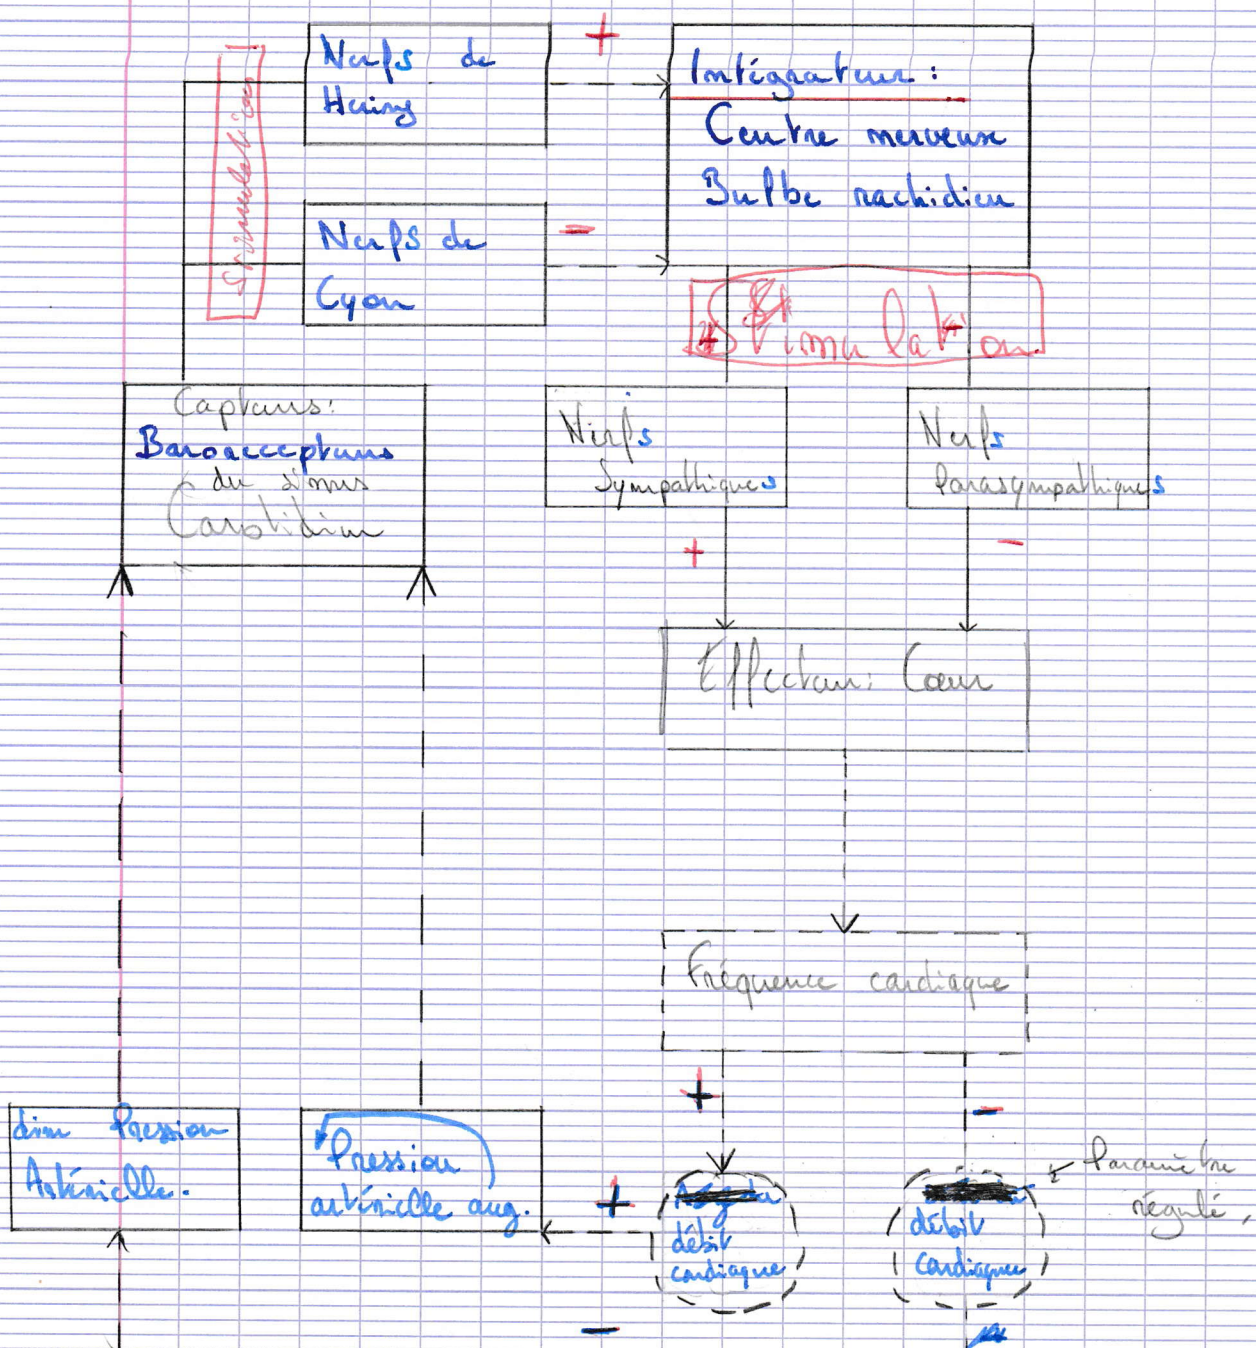 Nerfs de
Hering
+
Intégrateur :
Centre nerveux
Bulbe rachidien
Stimulation
Nerfs de
Cyon
-
+ Stimulation
Capteurs:
Barorecepteurs
du sinus
Carotidien
Nerfs
Sympathiques
Nerfs
Parasympathiques
+
-
Effecteur: Cœur
Fréquence cardiaque
+
-
dim Pression
Artérielle.
Pression
artérielle aug.
+
débit
cardiaque
débit
cardiaque
Paramètre
régulé,
-